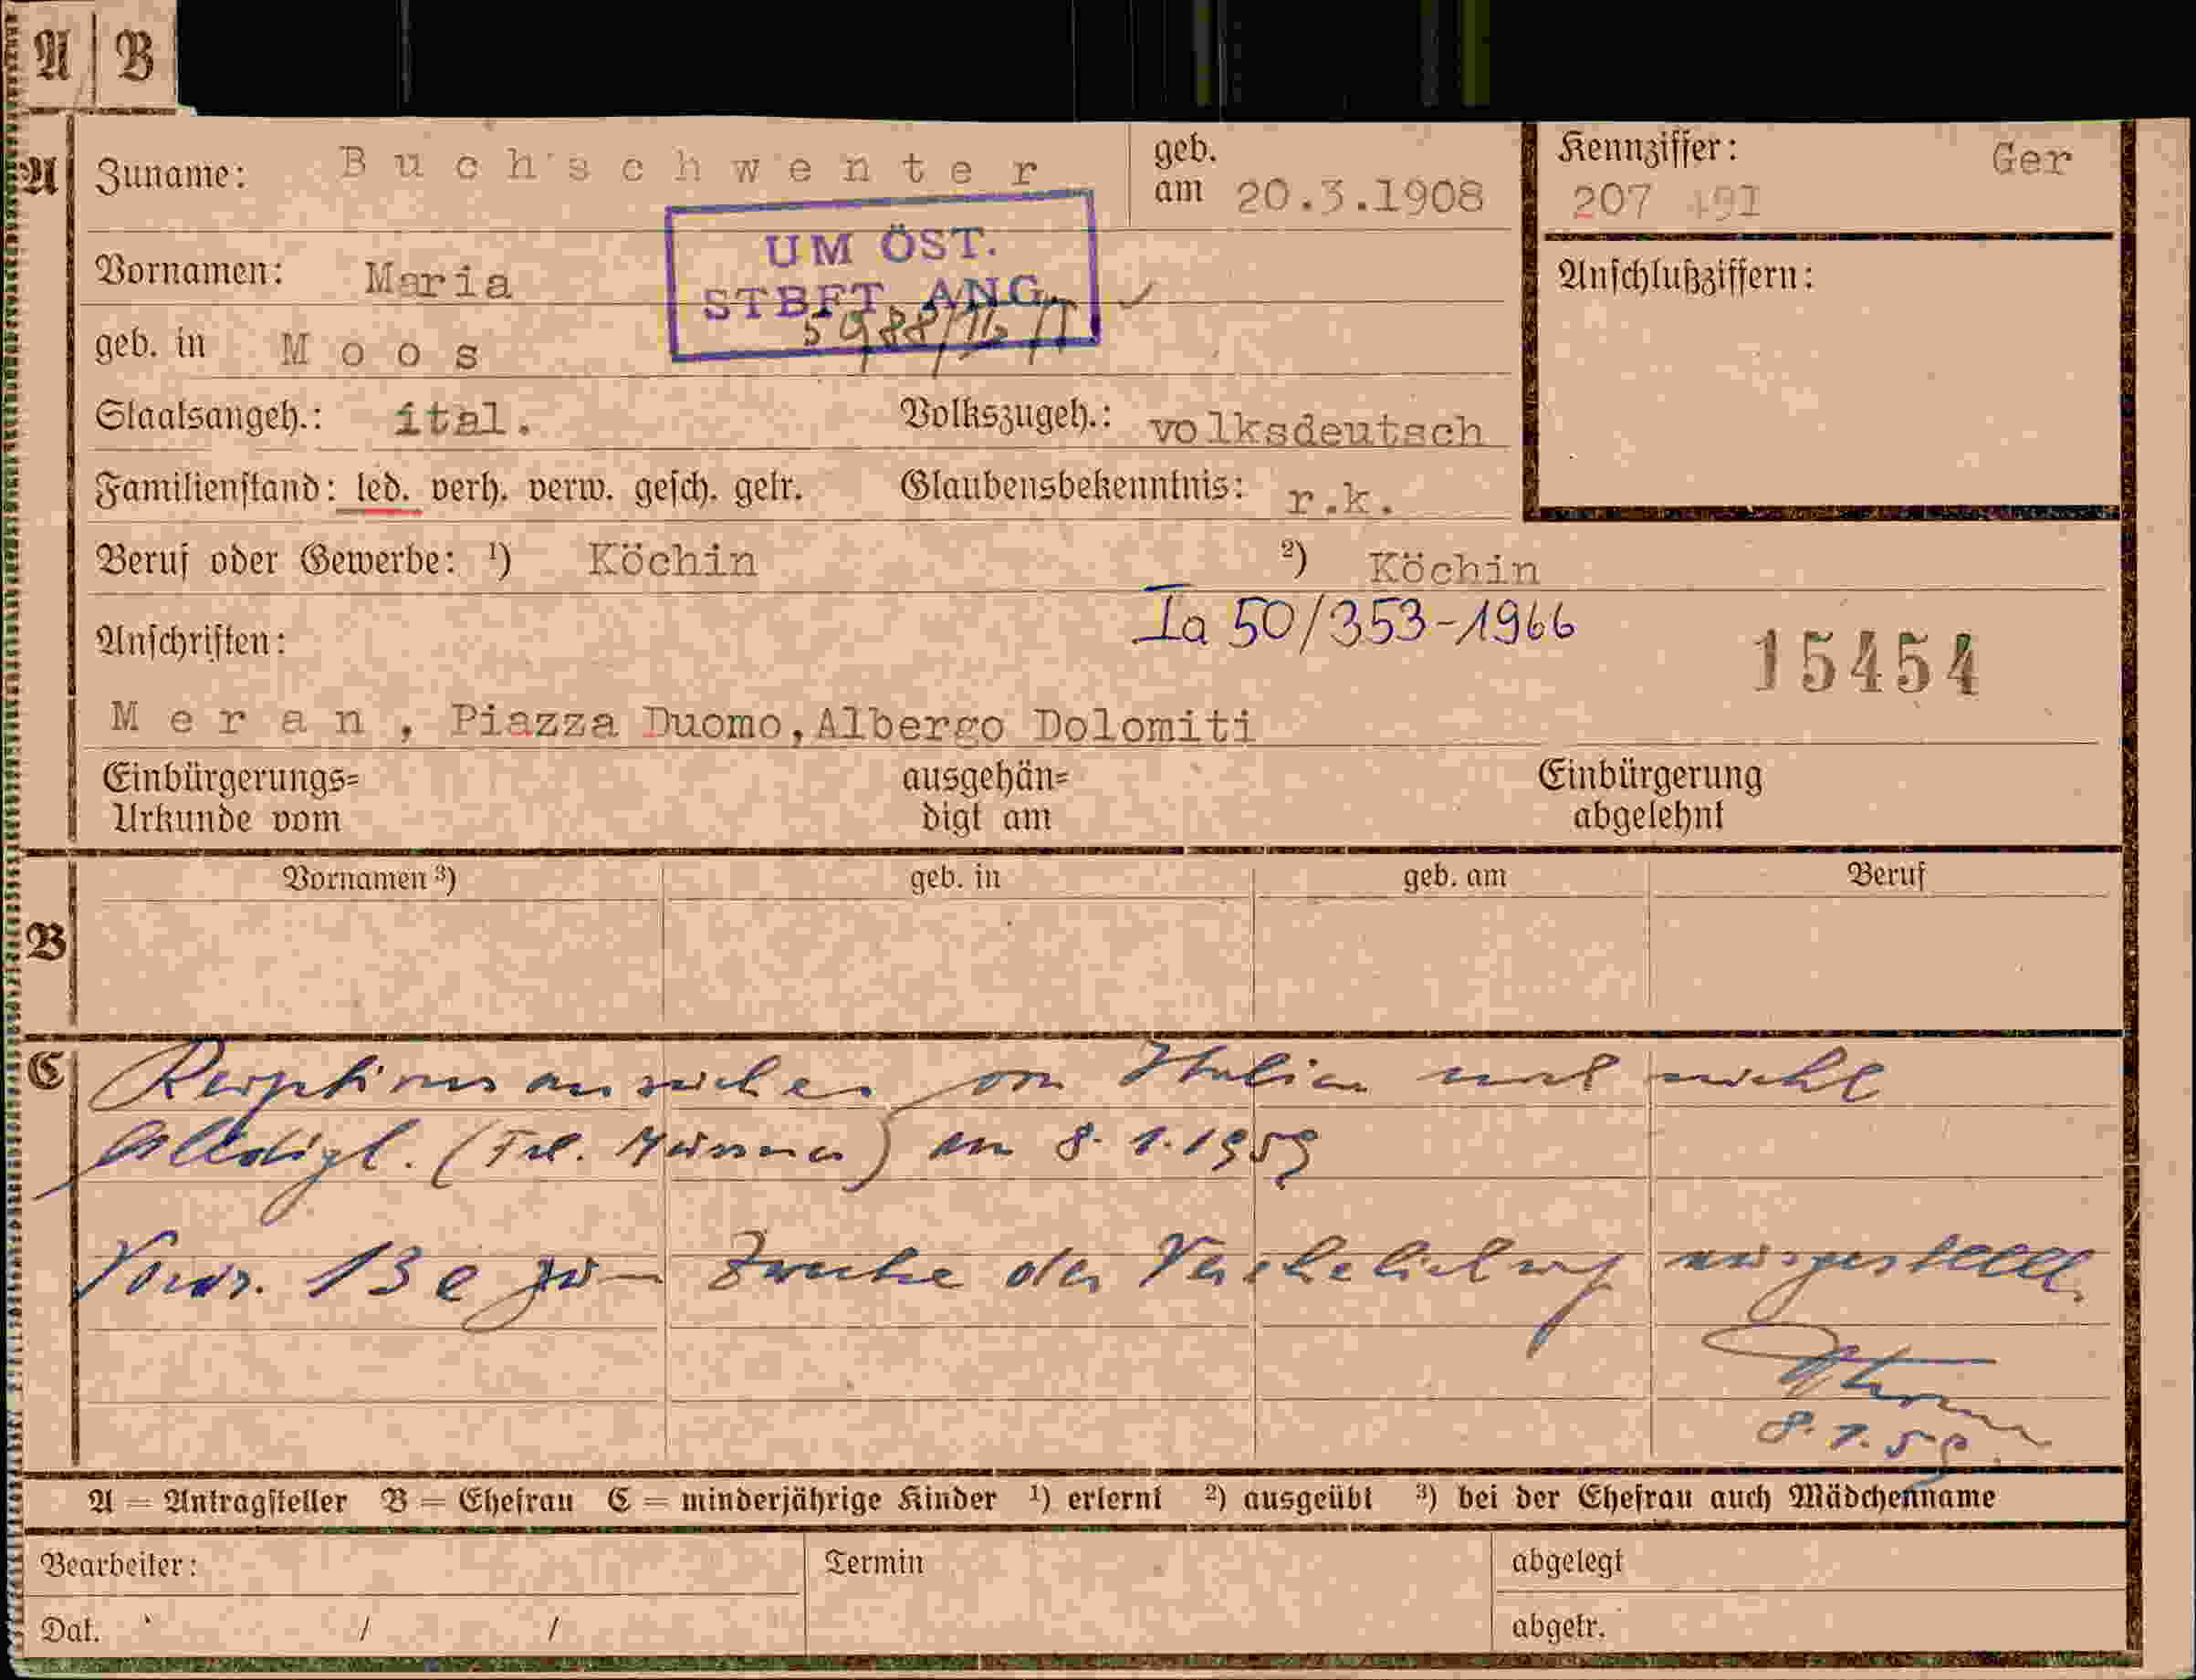 A | B
A Zuname: Buchschwenter geb. am 20.3.1908 Kennziffer: Ger
207 491
Vornamen: Maria
UM ÖST.
STBFT. ANG.
5988/16/I
Anschlußziffern:
geb. in Moos
Staatsangeh.: ital. Volkszugeh.: volksdeutsch
Familienstand: led. verh. verw. gesch. getr. Glaubensbekenntnis: r.k.
Beruf oder Gewerbe: ¹) Köchin ²) Köchin
Ia 50/353-1966
Anschriften: 15454
Meran, Piazza Duomo, Albergo Dolomiti
Einbürgerungs= ausgehän= Einbürgerung
Urkunde vom digt am abgelehnt
Vornamen ³) geb. in geb. am Beruf
B
C
von Italien und nicht
am 8. 1. 1959
13 e zum Zwecke der Verehelichung ausgestellt.
8. 1. 59
A = Antragsteller B = Ehefrau C = minderjährige Kinder ¹) erlernt ²) ausgeübt ³) bei der Ehefrau auch Mädchenname
Bearbeiter: Termin abgelegt
Dat. / / abgetr.